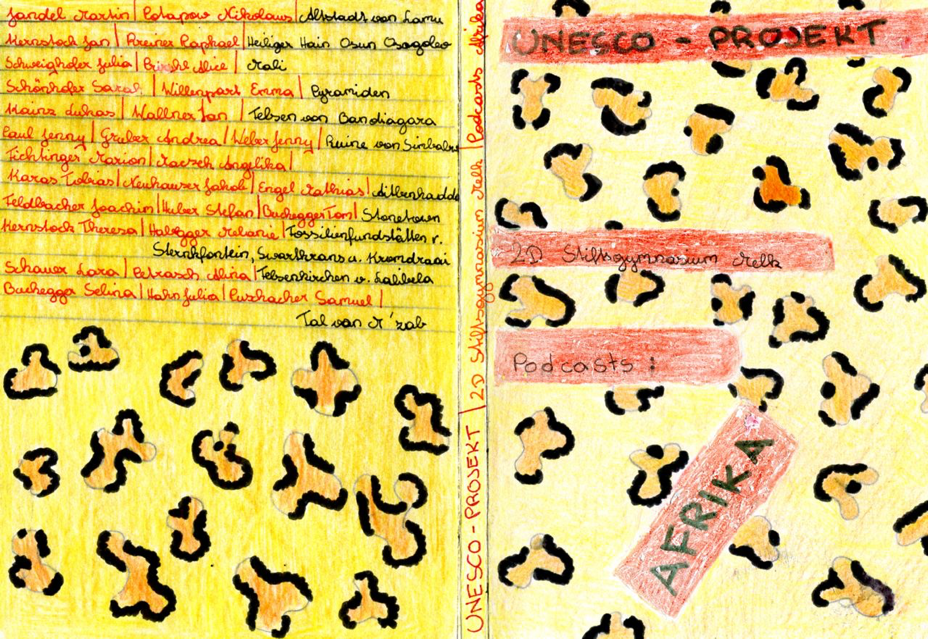 Jandel Martin | Potapow Nikolaus | Altstadt von Lamu
Kernstock Jan | Kreiner Raphael | Heiliger Hain Osun Osogobo
Schweighofer Julia | Birshe Alice | Mali
Schönhofer Sarah | Willenpart Emma | Pyramiden
Mainz Lukas | Wallner Jan | Felsen von Bandiagara
Paul Jenny | Gruber Andrea | Weber Jenny | Ruine von Simbabwe
Fichtinger Marion | Raesch Angelika |
Karas Tobias | Neuhauser Jakob | Engel Mathias | Aitbenhaddou
Feldbacher Joachim | Huber Stefan | Buchegger Tom | Stonetown
Kernstock Theresa | Habegger Melanie | Fossilienfundstätten v.
Sterkfontein, Swartkrans u. Kromdraai
Schauer Lara | Petrasch Alina | Felsenkirchen v. Lalibela
Buchegger Selina | Hahn Julia | Puschacher Samuel |
Tal van M'zab
UNESCO-PROJEKT | 2D Stiftsgymnasium Melk | Podcasts Afrika
UNESCO - PROJEKT
2D Stiftsgymnasium Melk
Podcasts :
AFRIKA